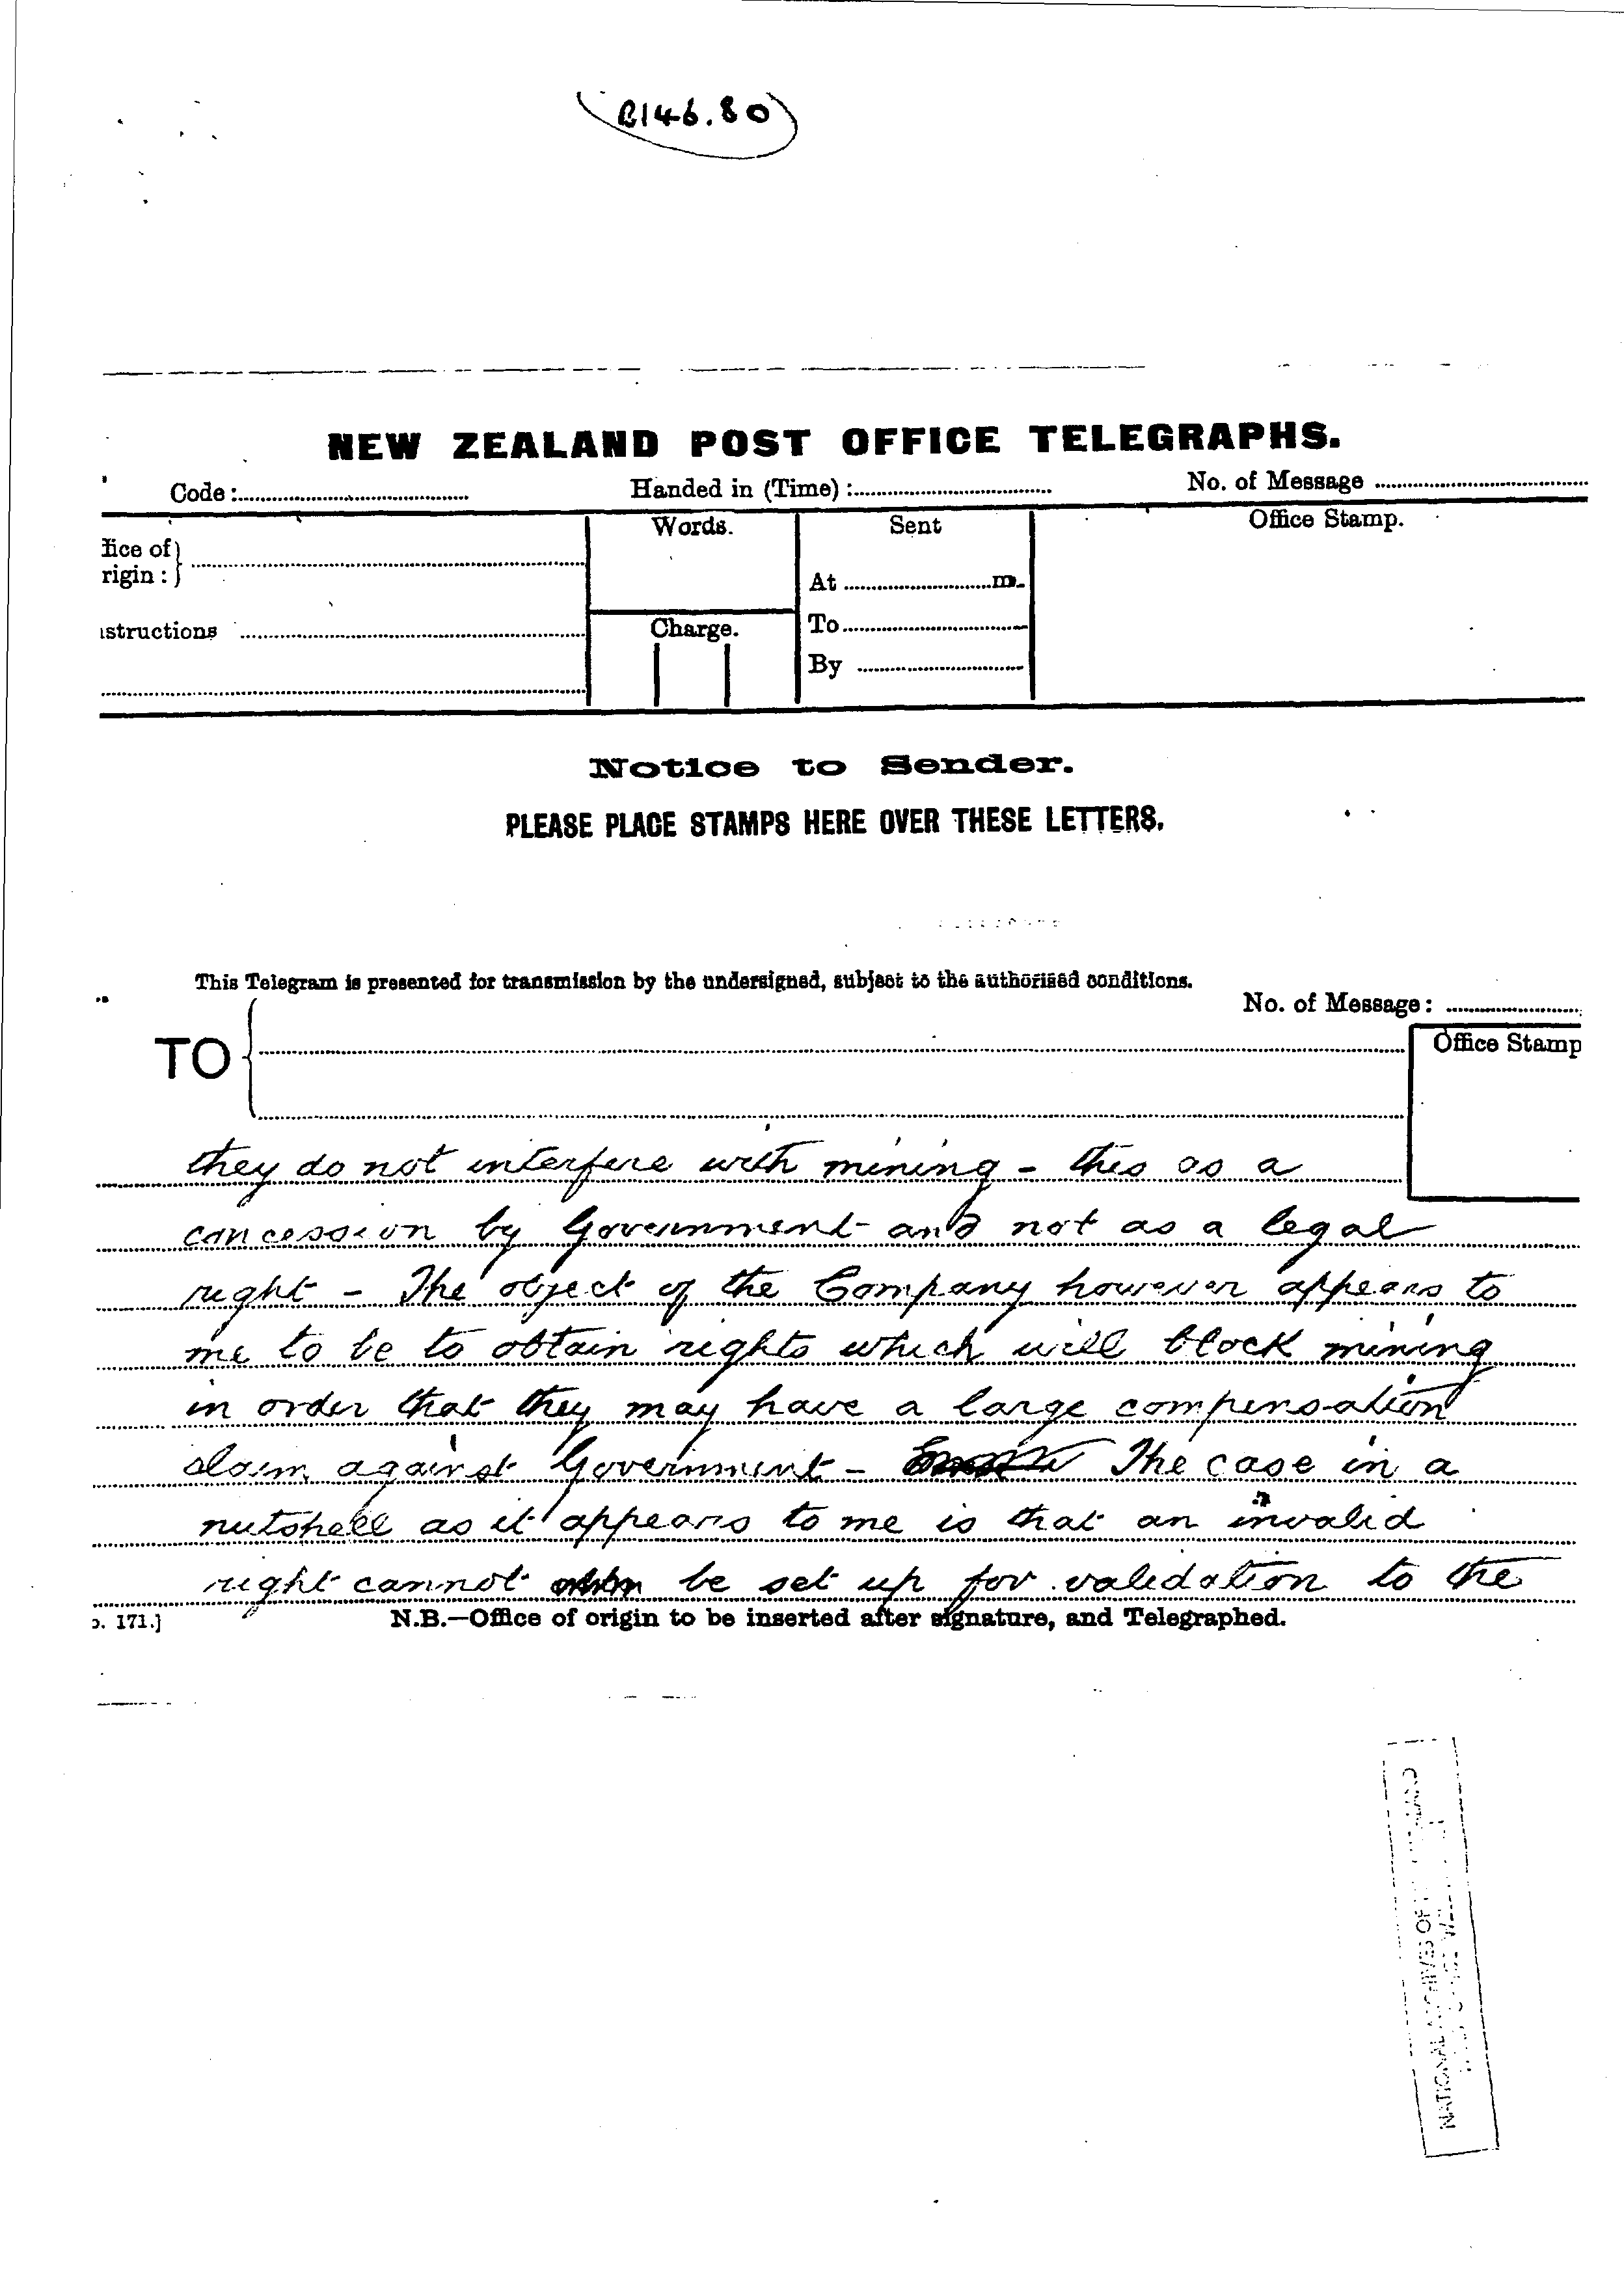 B146.80
NEW ZEALAND POST OFFICE TELEGRAPHS.
Code: Handed in (Time): No. of Message
Words. Sent Office Stamp.
fice of
rigin:
At m.
structions Charge. To
By
Notice to Sender.
PLEASE PLACE STAMPS HERE OVER THESE LETTERS.
This Telegram is presented for transmission by the undersigned, subject to the authorised conditions.
No. of Message:
TO Office Stamp
they do not interfere with mining - this as a
concession by Government and not as a legal
right - The object of the Company however appears to
me to be to obtain rights which will block mining
in order that they may have a large compensation
claim against Government - The case in a
nutshell as it appears to me is that an invalid
right cannot be set up for validation to the
o. 171.] N.B.—Office of origin to be inserted after signature, and Telegraphed.
NATIONAL ARCHIVES OF